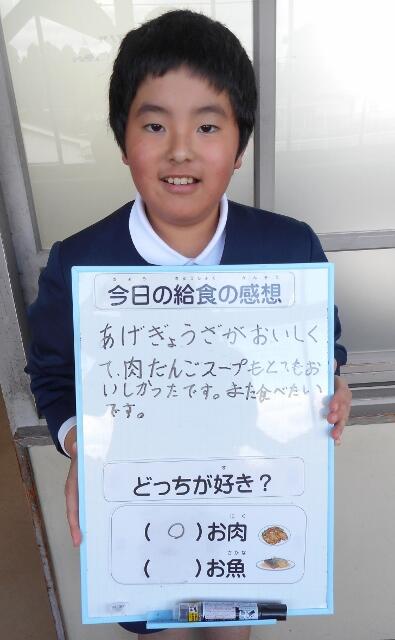 今日の給食の感想
あげぎょうざがおいしく
て、肉だんごスープもとてもお
いしかったです。また食べたい
です。
どっちが好き？
( ○ )お肉
(   )お魚